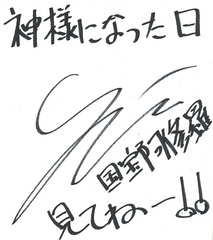 神様になった日
国宝修羅
見てねー!!